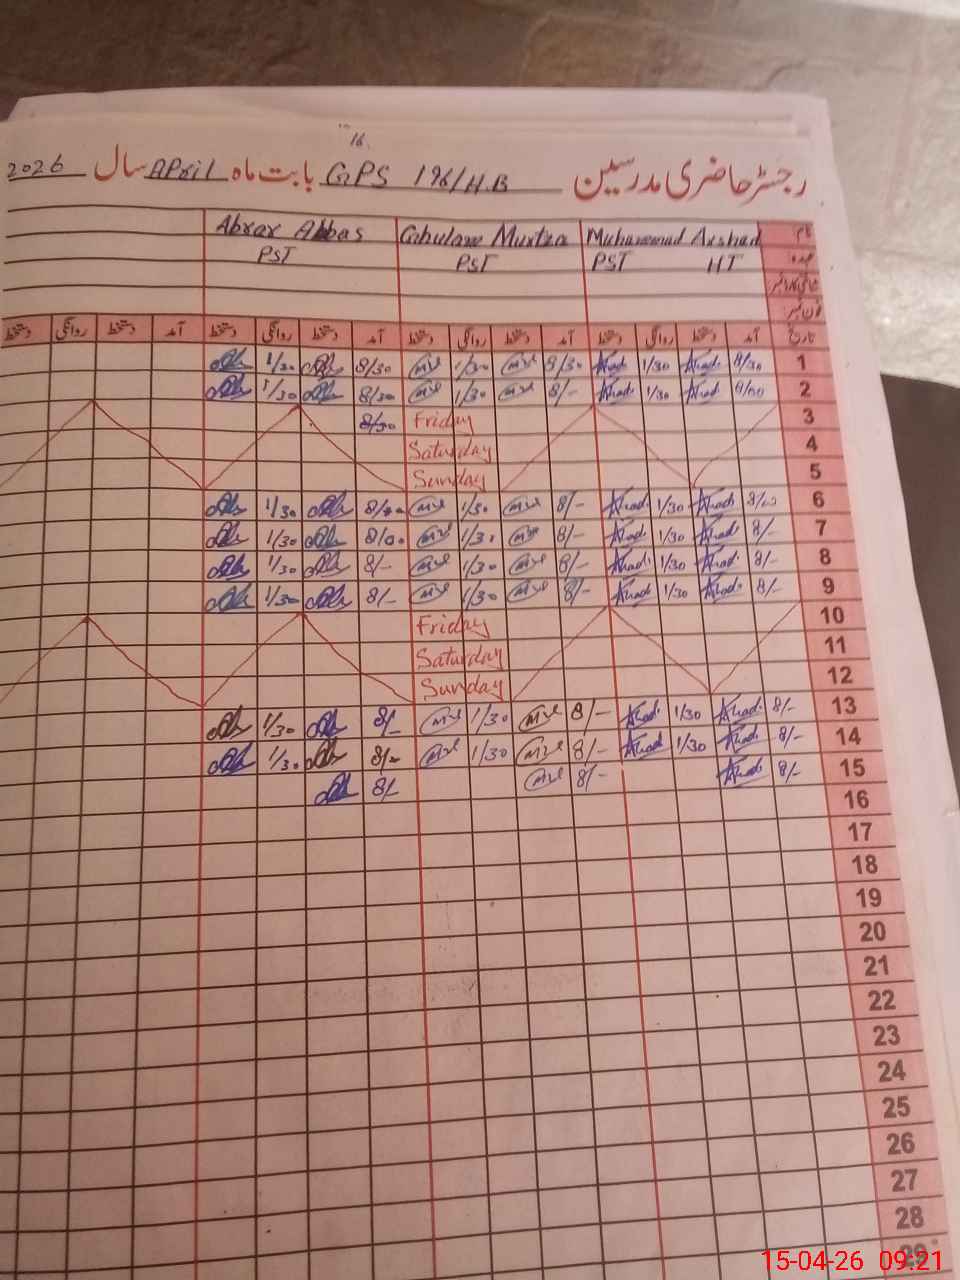 16
رجسٹر حاضری مدرسین GPS 196/H.B بابت ماہ April سال 2026
نام Muhammad Arshad Ghulam Murtza Abrar Abbas
عہدہ PST HT PST PST
شناختی کارڈ نمبر
فون نمبر
تاریخ آمد دستخط روانگی دستخط آمد دستخط روانگی دستخط آمد دستخط روانگی دستخط آمد دستخط روانگی دستخط
1 8/30 Arshad 1/30 Arshad 8/30 1/30 8/30 1/30
2 8/00 Arshad 1/30 Arshad 8/- 1/30 8/30 1/30
3 Friday 8/30
4 Saturday
5 Sunday
6 8/00 Arshad 1/30 Arshad 8/- 1/30 8/00 1/30
7 8/- Arshad 1/30 Arshad 8/- 1/30 8/00 1/30
8 8/- Arshad 1/30 Arshad 8/- 1/30 8/- 1/30
9 8/- Arshad 1/30 Arshad 8/- 1/30 8/- 1/30
10 Friday
11 Saturday
12 Sunday
13 8/- Arshad 1/30 Arshad 8/- 1/30 8/- 1/30
14 8/- Arshad 1/30 Arshad 8/- 1/30 8/- 1/30
15 8/- Arshad 8/- 8/-
16
17
18
19
20
21
22
23
24
25
26
27
28
29
15-04-26 09:21